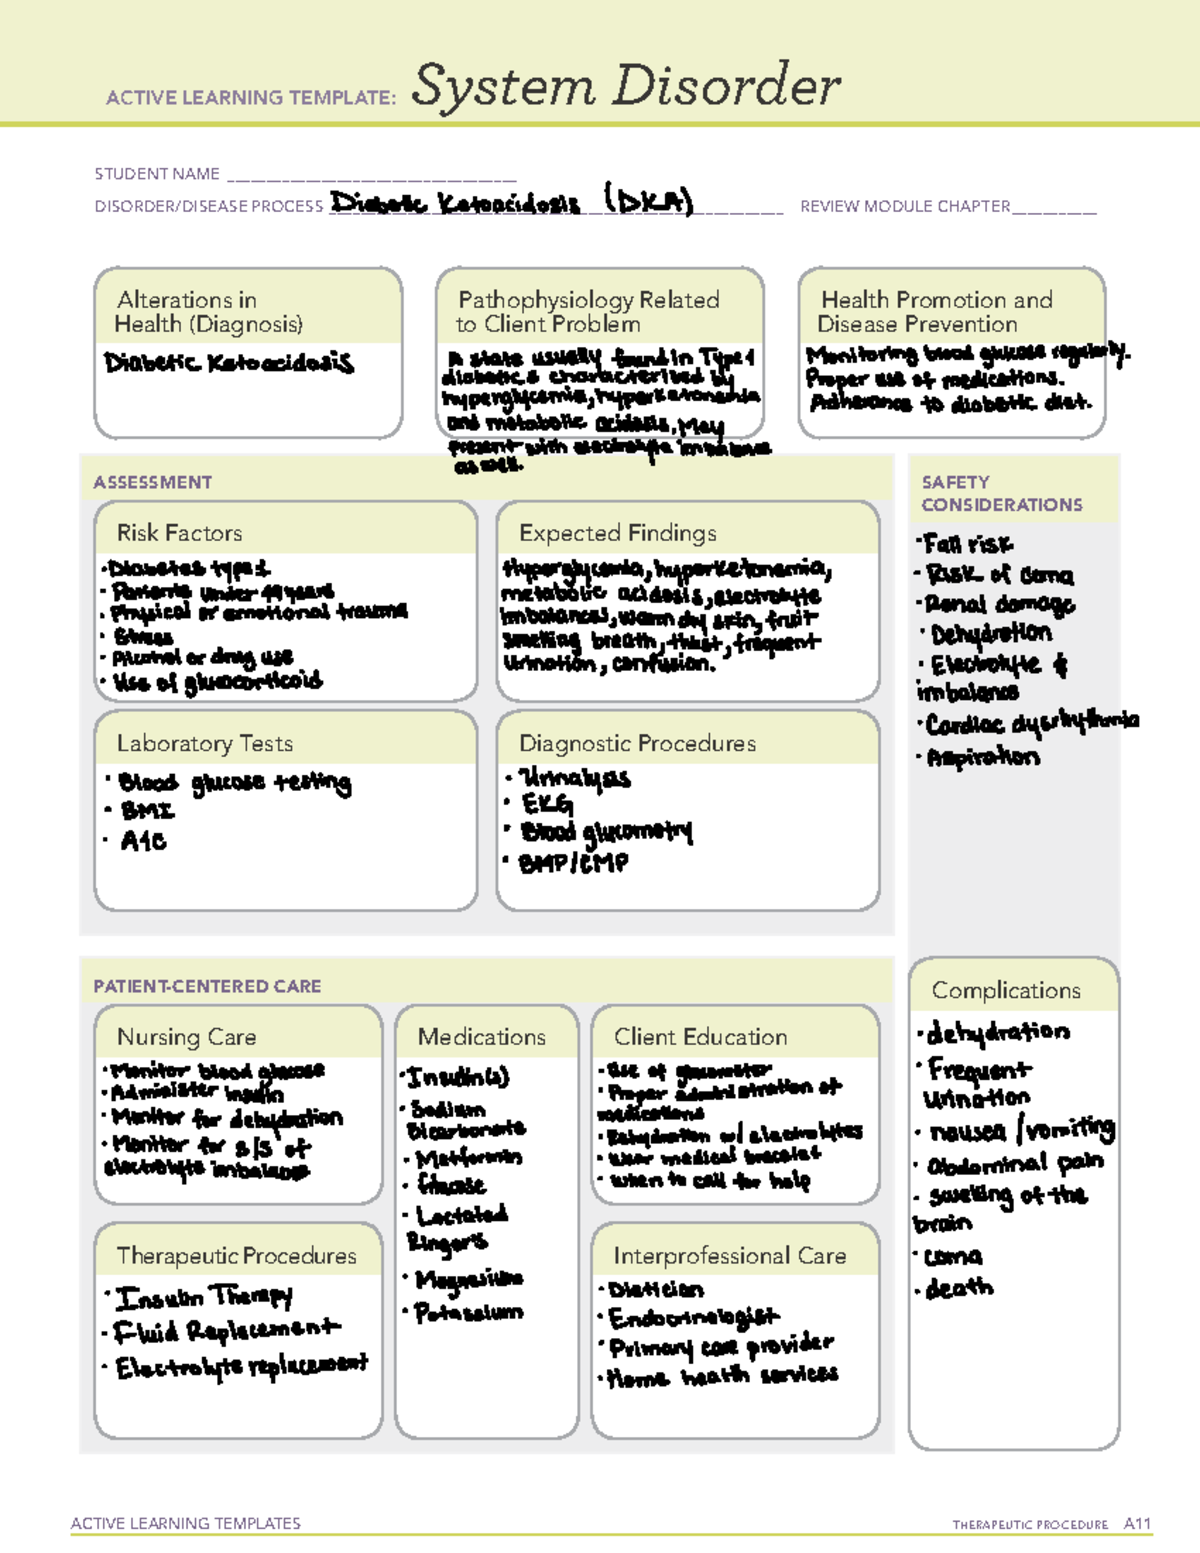 ACTIVE LEARNING TEMPLATE: System Disorder
STUDENT NAME
DISORDER/DISEASE PROCESS Diabetic Ketoacidosis (DKA) REVIEW MODULE CHAPTER
Alterations in
Health (Diagnosis)
Diabetic Ketoacidosis
Pathophysiology Related
to Client Problem
A state usually found in Type 1
diabetics characterized by
hyperglycemia, hyperketonemia
and metabolic acidosis, May
present with electrolyte imbalance
as well.
Health Promotion and
Disease Prevention
Monitoring blood glucose regularly.
Proper use of medications.
Adherance to diabetic diet.
ASSESSMENT
Risk Factors
· Diabetes type 1
· Patients under 19 years
· Physical or emotional trauma
· Stress
· Alcohol or drug use
· Use of glucocorticoid
Expected Findings
Hyperglycemia, hyperketonemia,
metabolic acidosis, electrolyte
imbalances, warm dry skin, fruit
smelling breath, thirst, frequent
Urination, confusion.
Laboratory Tests
· Blood glucose testing
· BMI
· A1C
Diagnostic Procedures
· Urinalysis
· EKG
· Blood glucometry
· BMP/CMP
SAFETY
CONSIDERATIONS
· Fall risk
· Risk of Coma
· Renal damage
· Dehydration
· Electrolyte
imbalance
· Cardiac dysrhythmia
· Aspiration
PATIENT-CENTERED CARE
Nursing Care
· Monitor blood glucose
· Administer insulin
· Monitor for dehydration
· Monitor for s/s of
electrolyte imbalances
Medications
· Insulin(s)
· Sodium
Bicarbonate
· Metformin
· Glucose
· Lactated
Ringer's
· Magnesium
· Potassium
Client Education
· Use of glucometer
· Proper administration of
medications
· Rehydration w/ electrolytes
· Wear medical bracelet
· When to call for help
Therapeutic Procedures
· Insulin Therapy
· Fluid Replacement
· Electrolyte replacement
Interprofessional Care
· Dietician
· Endocrinologist
· Primary care provider
· Home health services
Complications
· dehydration
· Frequent
Urination
· nausea/vomiting
· Abdominal pain
· swelling of the
brain
· coma
· death
ACTIVE LEARNING TEMPLATES
THERAPEUTIC PROCEDURE A11